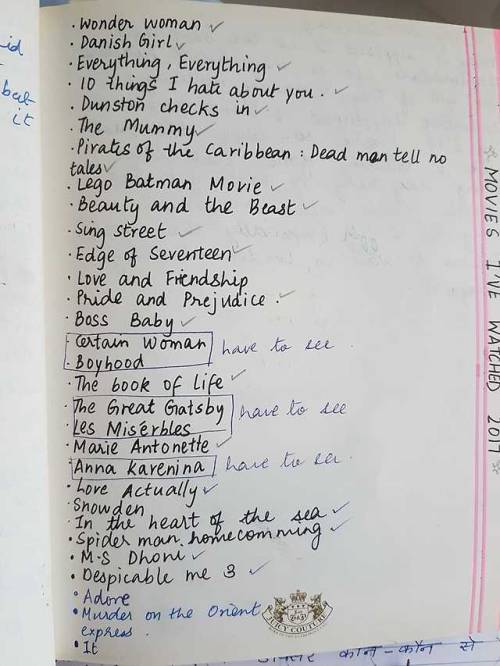 · Wonder woman ✓
· Danish Girl ✓
· Everything, Everything ✓
· 10 things I hate about you. ✓
· Dunston checks in ✓
· The Mummy ✓
· Pirates of the Caribbean : Dead men tell no
tales ✓
· Lego Batman Movie ✓
· Beauty and the Beast ✓
· Sing street ✓
· Edge of Seventeen ✓
· Love and Friendship
· Pride and Prejudice. ✓
· Boss Baby ✓
· Certain Woman
have to see
· Boyhood
· The book of life ✓
· The Great Gatsby
have to see
· Les Misérbles
· Marie Antonette ✓
· Anna Karenina
have to see.
· Love Actually ✓
· Snowden
· In the heart of the sea ✓
· Spider man homecomming ✓
· M.S Dhoni ✓
· Despicable me 3 ✓
· Adore
· Murder on the Orient
express.
· It
JUICY COUTURE
MOVIES I'VE WATCHED 2017
it
कौन-कौन से